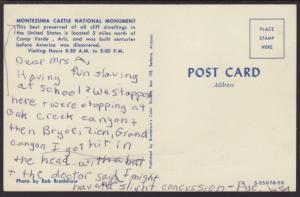 MONTEZUMA CASTLE NATIONAL MONUMENT
This best preserved of all cliff dwellings in
the United States is located 5 miles north of
Camp Verde, Ariz. and was built centuries
before America was discovered.
Visiting Hours 8:30 A.M. to 5:00 P.M.
Dear Mrs A,
Having fun slaving
at school & we stopped
here & were stopping at
Oak creek canyon &
then Bryce, Zion, Grand
canyon I got hit in
the head with a bat
& the doctor said I might
have a slight concussion - Bye,
Photo by Bob Bradshaw
PLACE
STAMP
HERE
POST CARD
Address
S-05678-98